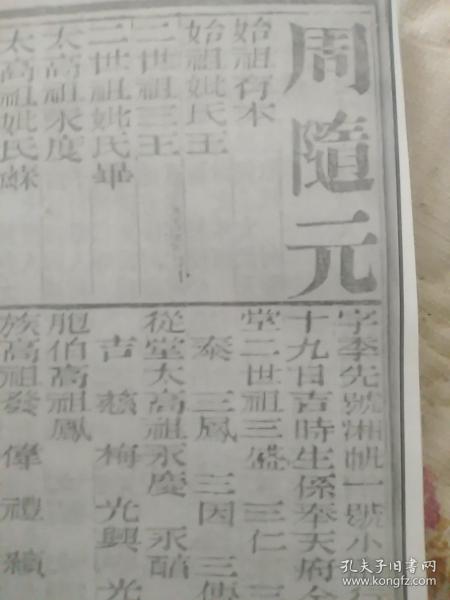 周隨元
始祖有本
始祖妣氏王
二世祖三王
二世祖妣氏畢
太高祖永度
太高祖妣氏蘇
字季先號湘帆一號小
十九日吉時生係奉天府
堂二世祖三 三仁 三
泰 三鳳 三因 三
從堂太高祖永慶 永
吉 慈 梅 光興 光
胞伯高祖鳳
族高祖發 偉 禮 續
孔夫子旧书网